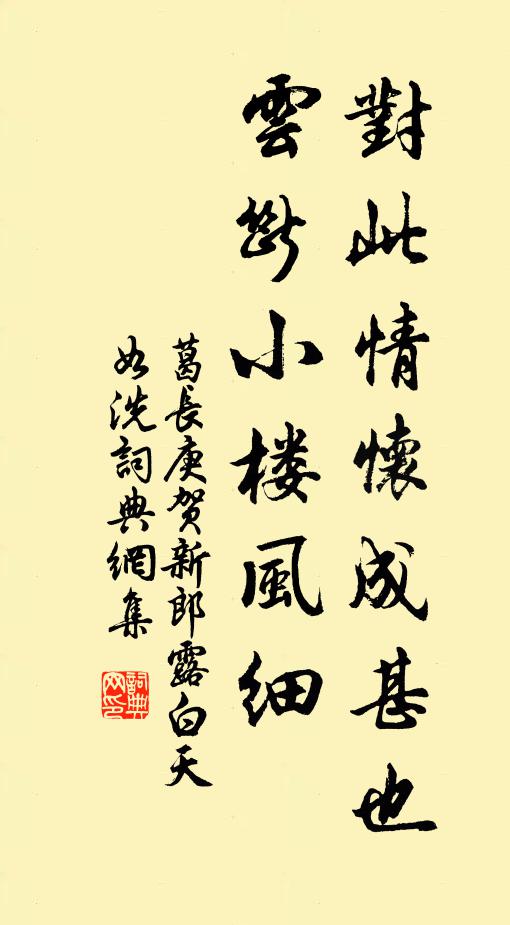 對此情懷成甚也
雲斷小楼風細
葛長庚贺新郎露白天
如洗詞典網集
詞典网印